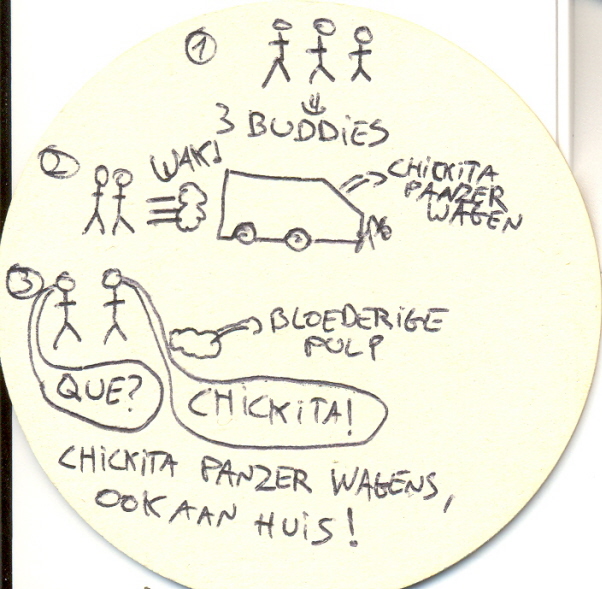 1
3 BUDDIES
2
WAK!
CHICKITA
PANZER
WAGEN
3
BLOEDERIGE
PULP
QUE?
CHICKITA!
CHICKITA PANZER WAGENS,
OOK AAN HUIS!